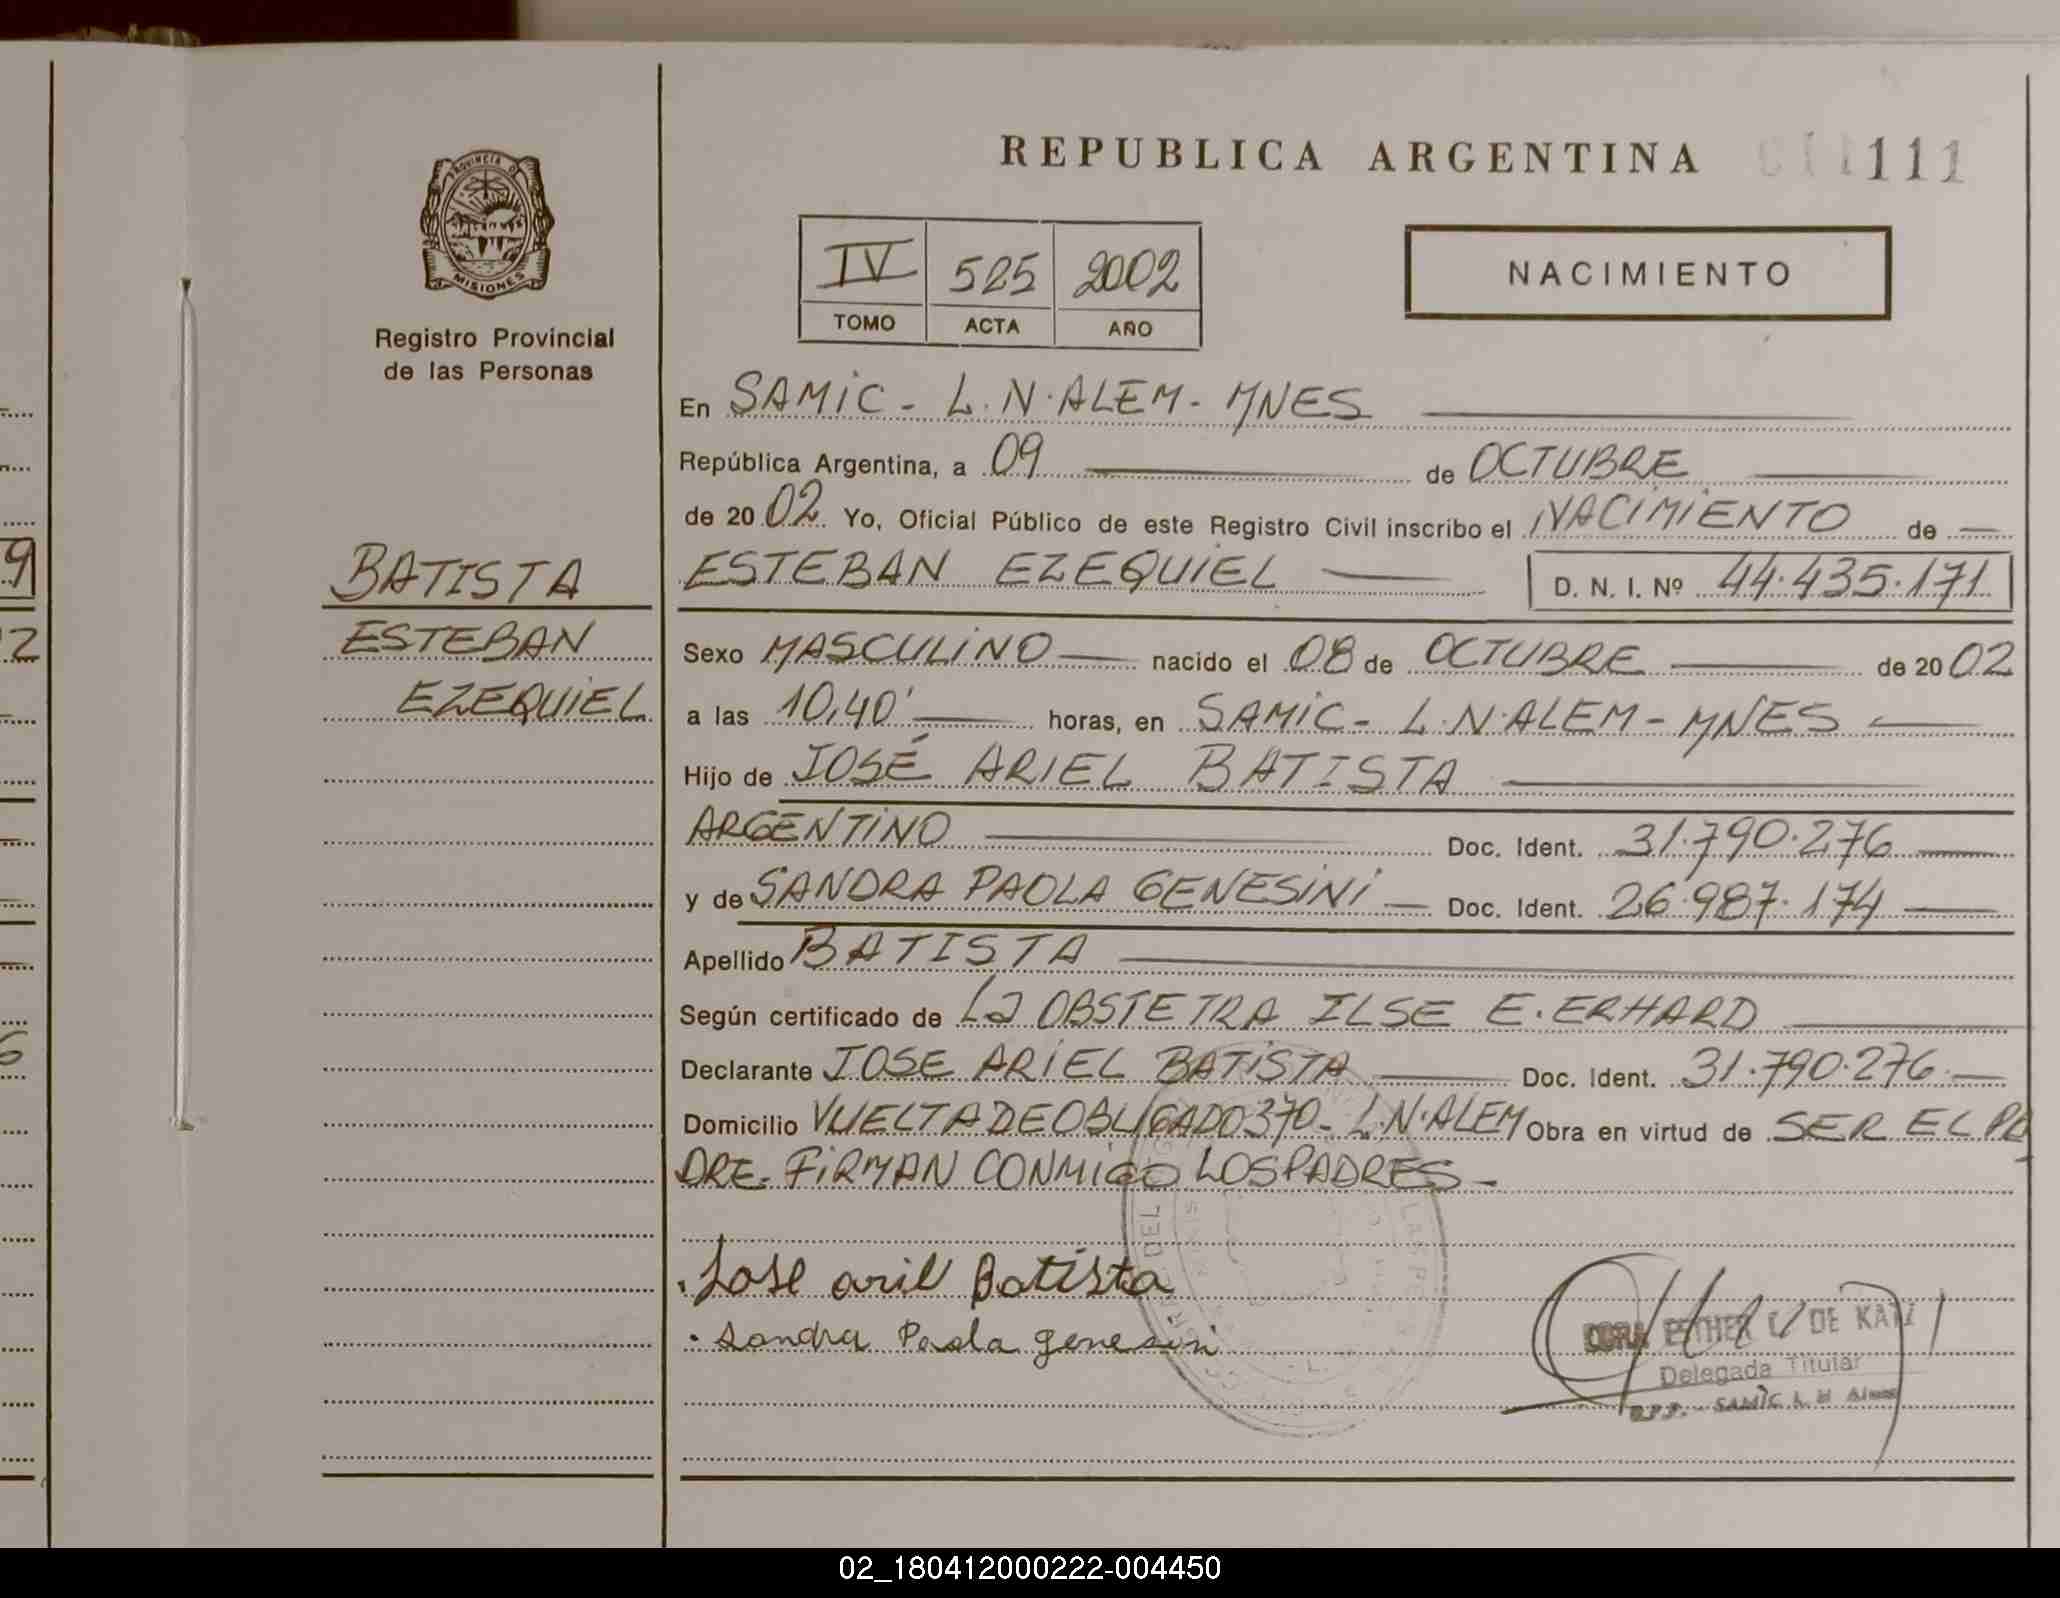 REPUBLICA ARGENTINA 111
PROVINCIA D
MISIONES
Registro Provincial
de las Personas
IV 525 2002
TOMO ACTA AÑO
NACIMIENTO
En SAMIC - L.N.ALEM - MNES
República Argentina, a 09 de OCTUBRE
de 2002 Yo, Oficial Público de este Registro Civil inscribo el NACIMIENTO de
ESTEBAN EZEQUIEL D. N. I. Nº 44.435.171
BATISTA
ESTEBAN
EZEQUIEL
Sexo MASCULINO nacido el 08 de OCTUBRE de 2002
a las 10,40' horas, en SAMIC - L.N.ALEM - MNES
Hijo de JOSÉ ARIEL BATISTA
ARGENTINO Doc. Ident. 31.790.276
y de SANDRA PAOLA GENESINI Doc. Ident. 26.987.174
Apellido BATISTA
Según certificado de La OBSTETRA ILSE E. ERHARD
Declarante JOSE ARIEL BATISTA Doc. Ident. 31.790.276
Domicilio VUELTA DE OBLIGADO 370 - L.N.ALEM Obra en virtud de SER EL PA
DRE. FIRMAN CONMIGO LOS PADRES -
Jose aril Batista
Sandra Paola genesini
ESTHER DE KATZ
Delegada Titular
SAMIC L. N.
9
2
6
02_180412000222-004450